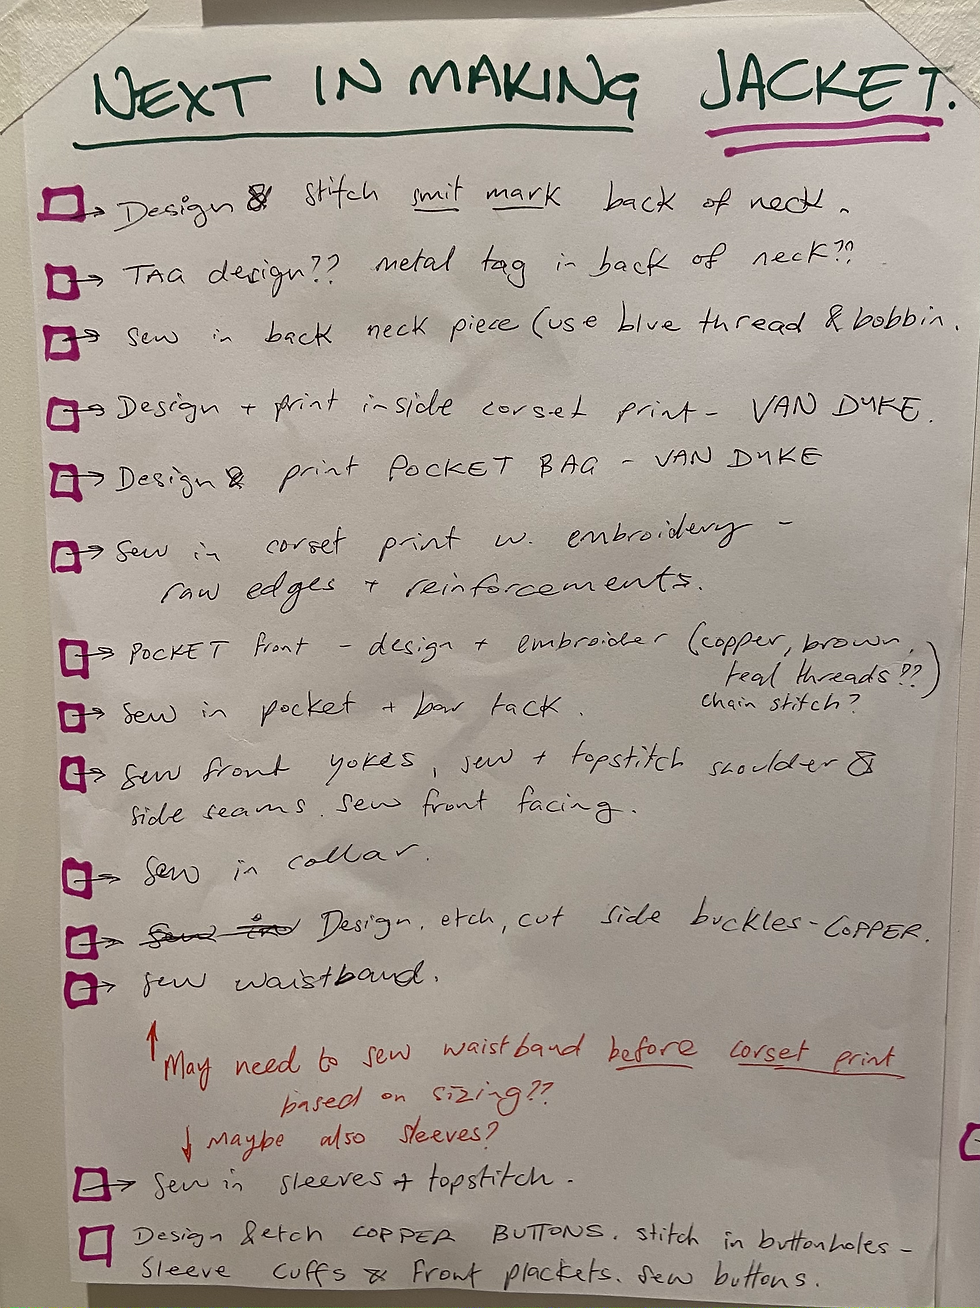 NEXT IN MAKING JACKET.
Design & stitch smit mark back of neck.
TAG design?? metal tag in back of neck??
Sew in back neck piece (use blue thread & bobbin.
Design + print inside corset print - VAN DYKE.
Design & print POCKET BAG - VAN DYKE
Sew in corset print w. embroidery -
raw edges + reinforcements.
POCKET front - design + embroider (copper, brown,
teal threads??)
chain stitch?
Sew in pocket + bar tack.
Sew front yokes, sew + topstitch shoulder &
side seams. sew front facing.
Sew in collar.
Sew in Design, etch, cut side buckles - COPPER.
Sew waistband.
↑ May need to sew waistband before corset print
based on sizing??
↓ Maybe also sleeves?
Sew in sleeves + topstitch.
Design & etch COPPER BUTTONS. stitch in buttonholes -
Sleeve cuffs & front plackets. Sew buttons.